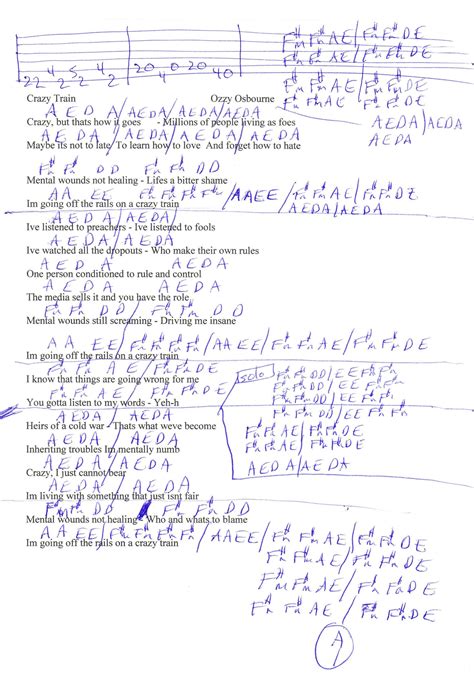 F#m F#m A E / F#m F#m D E
F#m F#m A E / F#m F#m D E
F#m F#m A E / F#m F#m D E
F#m F#m A E / F#m F#m D E
22 4 2 4 2 20 4 0 20 40
Crazy Train Ozzy Osbourne
A E D A / A E D A / A E D A / A E D A
A E D A / A E D A
Crazy, but thats how it goes - Millions of people living as foes
A E D A / A E D A / A E D A
A E D A
Maybe its not to late To learn how to love And forget how to hate
F#m F#m D D
Mental wounds not healing - Lifes a bitter shame
A A E E F#m F#m F#m F#m / A A E E / F#m F#m A E / F#m F#m D E
Im going off the rails on a crazy train
A E D A / A E D A
A E D A / A E D A
Ive listened to preachers - Ive listened to fools
A E D A / A E D A
Ive watched all the dropouts - Who make their own rules
A E D A A E D A
One person conditioned to rule and control
A E D A A E D A
The media sells it and you have the role
F#m F#m D D / F#m F#m D D
Mental wounds still screaming - Driving me insane
A A E E / F#m F#m F#m F#m / A A E E / F#m F#m A E / F#m F#m D E
Im going off the rails on a crazy train
F#m F#m A E / F#m F#m D E
I know that things are going wrong for me
F#m F#m A E / F#m F#m D E
You gotta listen to my words - Yeh-h
solo
F#m F#m D D / E E F#m F#m
F#m F#m D D / E E F#m F#m
F#m F#m D D / E E F#m F#m
F#m F#m D D / E E F#m F#m
F#m F#m A E / F#m F#m D E
F#m F#m A E / F#m F#m D E
A E D A / A E D A
A E D A / A E D A
Heirs of a cold war - Thats what weve become
A E D A / A E D A
Inheriting troubles Im mentally numb
A E D A / A E D A
Crazy, I just cannot bear
A E D A / A E D A
Im living with something that just isnt fair
F#m F#m D D F#m F#m D D
Mental wounds not healing - Who and whats to blame
A A E E / F#m F#m F#m F#m / A A E E / F#m F#m A E / F#m F#m D E
Im going off the rails on a crazy train
F#m F#m A E / F#m F#m D E
F#m F#m A E / F#m F#m D E
F#m F#m A E / F#m F#m D E
A